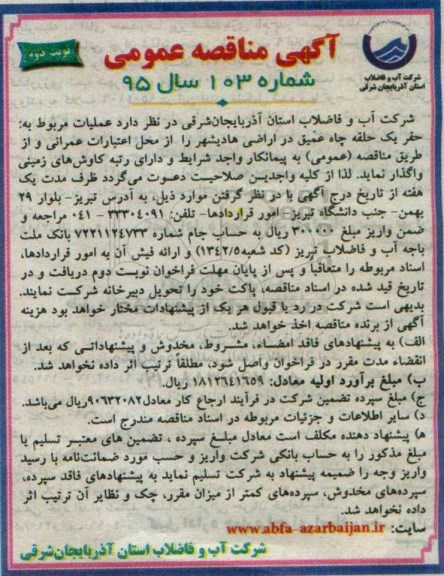 آگهی مناقصه عمومی
نوبت دوم
شماره ۱۰۳ سال ۹۵
شرکت آب و فاضلاب
استان آذربایجان شرقی
شرکت آب و فاضلاب استان آذربایجان‌شرقی در نظر دارد عملیات مربوط به:
حفر یک حلقه چاه عمیق در اراضی هادیشهر را از محل اعتبارات عمرانی و از
طریق مناقصه (عمومی) به پیمانکار واجد شرایط و دارای رتبه کاوش‌های زمینی
واگذار نماید. لذا از کلیه واجدین صلاحیت دعوت می‌گردد ظرف مدت یک
هفته از تاریخ درج آگهی با در نظر گرفتن موارد ذیل، به آدرس تبریز- بلوار ۲۹
بهمن- جنب دانشگاه تبریز- امور قراردادها- تلفن: ۳۳۳۰۴۰۹۱ - ۰۴۱ مراجعه و
ضمن واریز مبلغ ۳۰۱۰۰۰ ریال به حساب جام شماره ۷۲۲۱۱۲۴۷۳۳ بانک ملت
باجه آب و فاضلاب تبریز (کد شعبه۱۳۴۲/۵) و ارائه فیش آن به امور قراردادها،
اسناد مربوطه را متعاقباً و پس از پایان مهلت فراخوان نوبت دوم دریافت و در
تاریخ قید شده در اسناد مناقصه، پاکت خود را تحویل دبیرخانه شرکت نمایند.
بدیهی است شرکت در رد یا قبول هر یک از پیشنهادات مختار خواهد بود هزینه
آگهی از برنده مناقصه اخذ خواهد شد.
الف) به پیشنهادهای فاقد امضاء، مشروط، مخدوش و پیشنهاداتی که بعد از
انقضاء مدت مقرر در فراخوان واصل شود، مطلقاً ترتیب اثر داده نخواهد شد.
ب) مبلغ برآورد اولیه معادل: ۱۸۱۲۶۴۱۶۵۹ ریال.
ج) مبلغ سپرده تضمین شرکت در فرآیند ارجاع کار معادل۹۰۶۳۲۰۸۲ریال می‌باشد.
د) سایر اطلاعات و جزئیات مربوطه در اسناد مناقصه مندرج است.
ه) پیشنهاد دهنده مکلف است معادل مبلغ سپرده ، تضمین های معتبر تسلیم یا
مبلغ مذکور را به حساب بانکی شرکت واریز و حسب مورد ضمانت‌نامه یا رسید
واریز وجه را ضمیمه پیشنهاد به شرکت تسلیم نماید به پیشنهادهای فاقد سپرده،
سپرده‌های مخدوش، سپرده‌های کمتر از میزان مقرر، چک و نظایر آن ترتیب اثر
داده نخواهد شد.
سایت: www.abfa-azarbaijan.ir
شرکت آب و فاضلاب استان آذربایجان‌شرقی